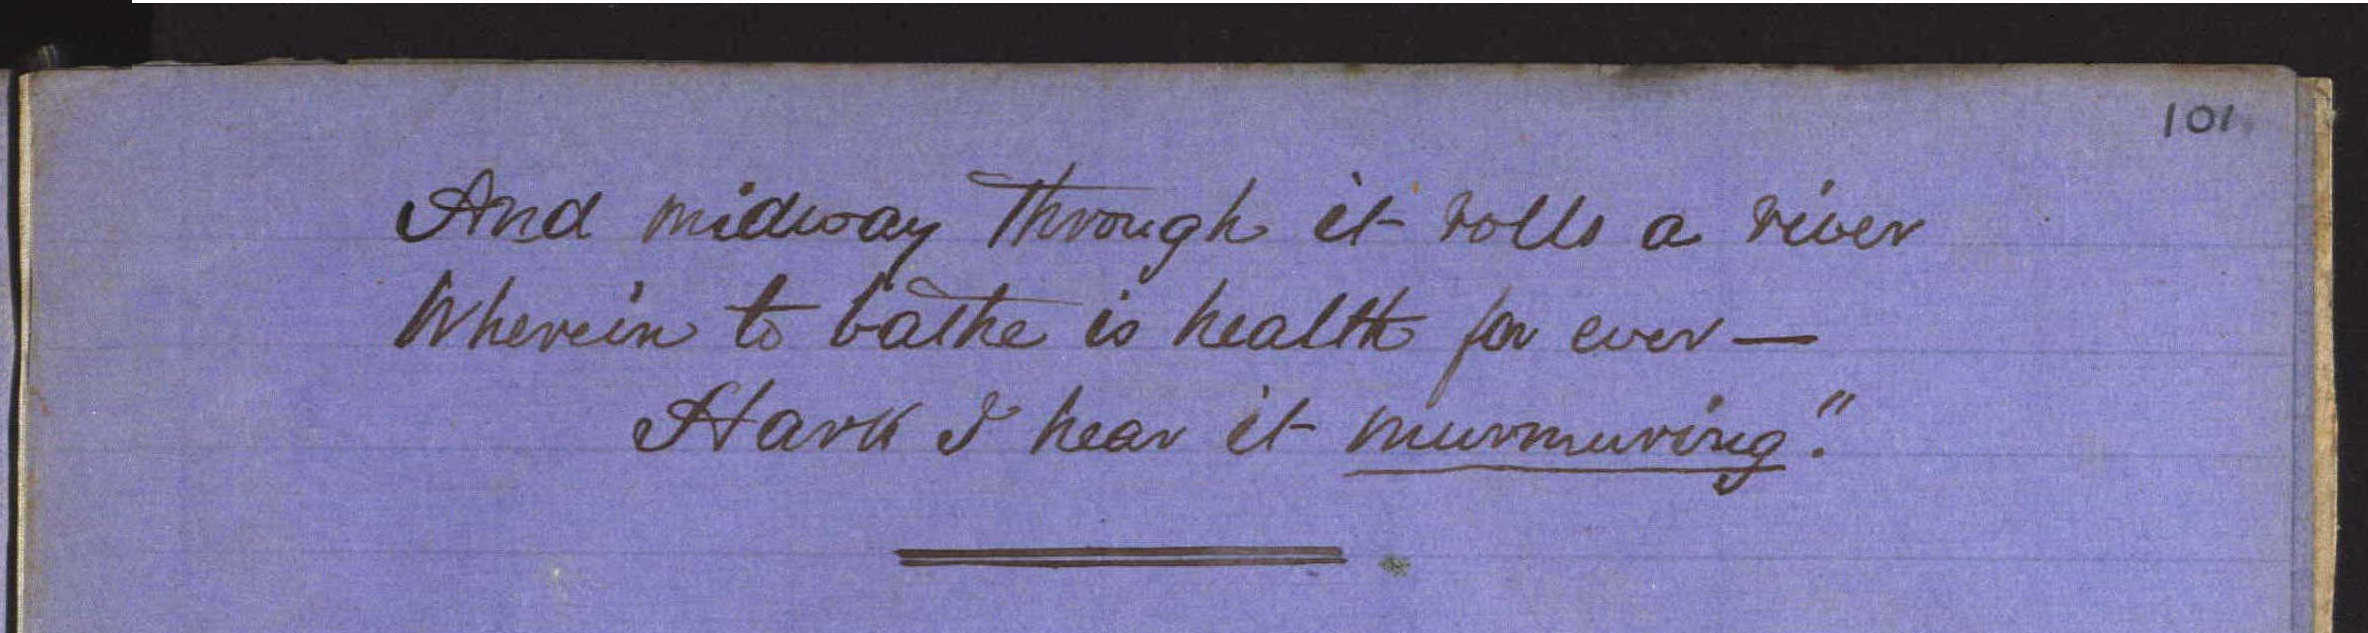 101
And midway through it rolls a river
Wherein to bathe is health for ever —
Hark I hear it murmuring."